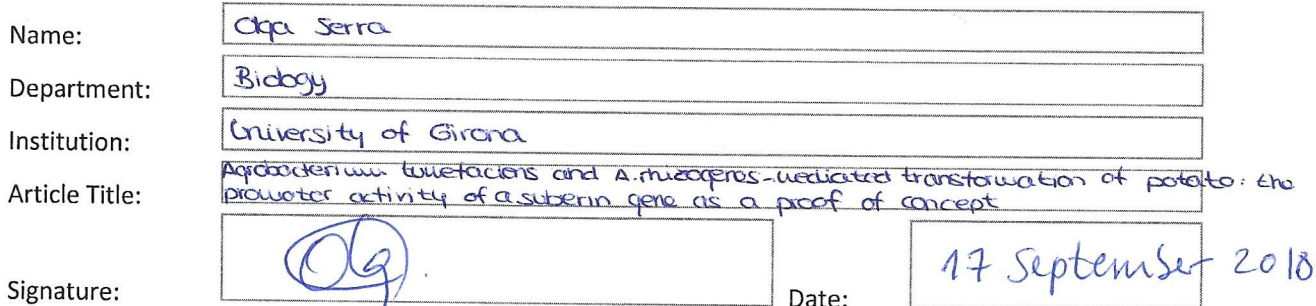 Name: Olga Serra
Department: Biology
Institution: University of Girona
Article Title: Agrobacterium tumefaciens and A. rhizogenes-mediated transformation of potato: the
promoter activity of a suberin gene as a proof of concept
Signature: Olga. Date: 17 September 2018